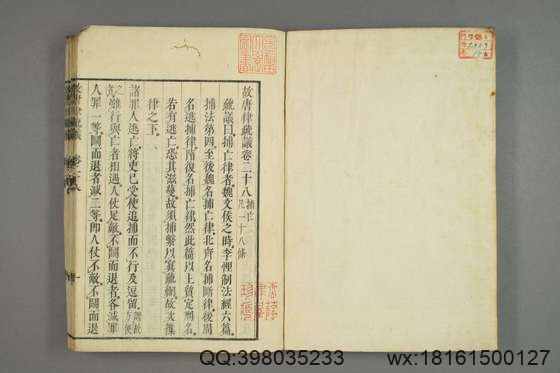 故唐律疏議卷二十八 捕亡 凡一十八條
疏議曰捕亡律者魏文侯之時李悝制法經六篇
捕法第四至後魏名捕亡律北齊名捕斷律後周
名逃捕律隋復名捕亡律然此篇以上質定刑名
若有逃亡恐其滋蔓故須捕繫以寘疏網故次雜
律之下
諸罪人逃亡將吏已受使追捕而不行及逗留謂故方便
之雖行與亡者相遇人仗足敵不鬭而退者各減罪
人罪一等鬭而退者減二等即人仗不敵不鬭而退
QQ:398035233
wx:18161500127